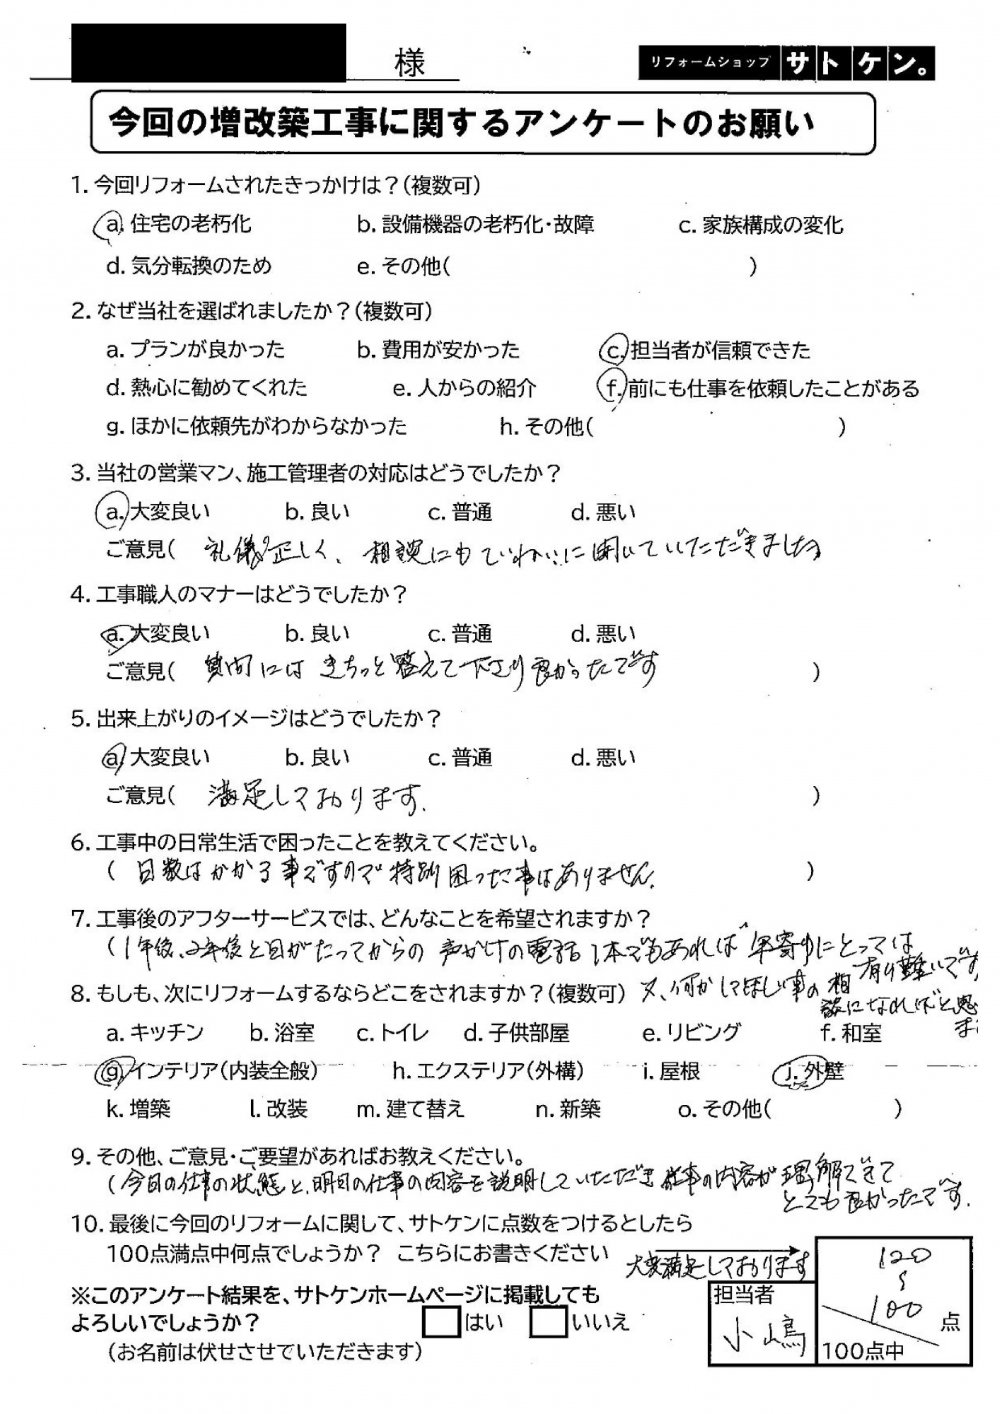 様
リフォームショップ サトケン。
今回の増改築工事に関するアンケートのお願い
1. 今回リフォームされたきっかけは？（複数可）
a. 住宅の老朽化 b. 設備機器の老朽化・故障 c. 家族構成の変化
d. 気分転換のため e. その他( )
2. なぜ当社を選ばれましたか？（複数可）
a. プランが良かった b. 費用が安かった c. 担当者が信頼できた
d. 熱心に勧めてくれた e. 人からの紹介 f. 前にも仕事を依頼したことがある
g. ほかに依頼先がわからなかった h. その他( )
3. 当社の営業マン、施工管理者の対応はどうでしたか？
a. 大変良い b. 良い c. 普通 d. 悪い
ご意見( 礼儀正しく、相談にもていねいに聞いていただきました
4. 工事職人のマナーはどうでしたか？
a. 大変良い b. 良い c. 普通 d. 悪い
ご意見( 質問には きちっと答えて下さり良かったです )
5. 出来上がりのイメージはどうでしたか？
a. 大変良い b. 良い c. 普通 d. 悪い
ご意見( 満足しております. )
6. 工事中の日常生活で困ったことを教えてください。
( 日数はかかる事ですので特別困った事はありません. )
7. 工事後のアフターサービスでは、どんなことを希望されますか？
(1年後、2年後と日がたってからの 声がけの電話1本でもあれば 年寄りにとっては
有り難いです
8. もしも、次にリフォームするならどこをされますか？（複数可） 又、何かしてほしい事の相
談になればと思
a. キッチン b. 浴室 c. トイレ d. 子供部屋 e. リビング f. 和室
g. インテリア（内装全般） h. エクステリア（外構） i. 屋根 j. 外壁
k. 増築 l. 改装 m. 建て替え n. 新築 o. その他( )
9. その他、ご意見・ご要望があればお教えください。
(今日の仕事の状態と、明日の仕事の内容を説明していただき 仕事の内容が理解できて
とても良かったです.
10. 最後に今回のリフォームに関して、サトケンに点数をつけるとしたら
100点満点中何点でしょうか？ こちらにお書きください
大変満足しております
120
〜
100 点
100点中
担当者
小嶋
※このアンケート結果を、サトケンホームページに掲載しても
よろしいでしょうか？ はい いいえ
（お名前は伏せさせていただきます）